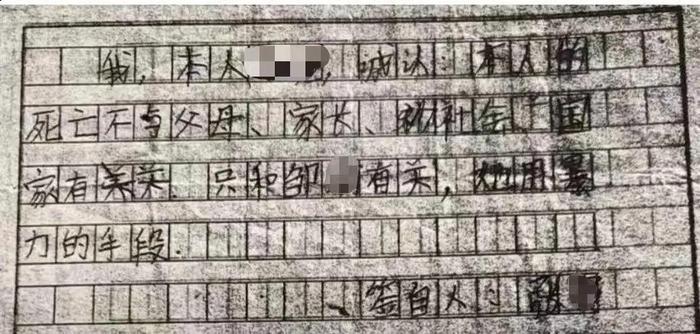 我,本人,诚认:本人的
死亡不与父母、家长、和社会、国
家有关系.只和邹有关,她用暴
力的手段.
签自人:张